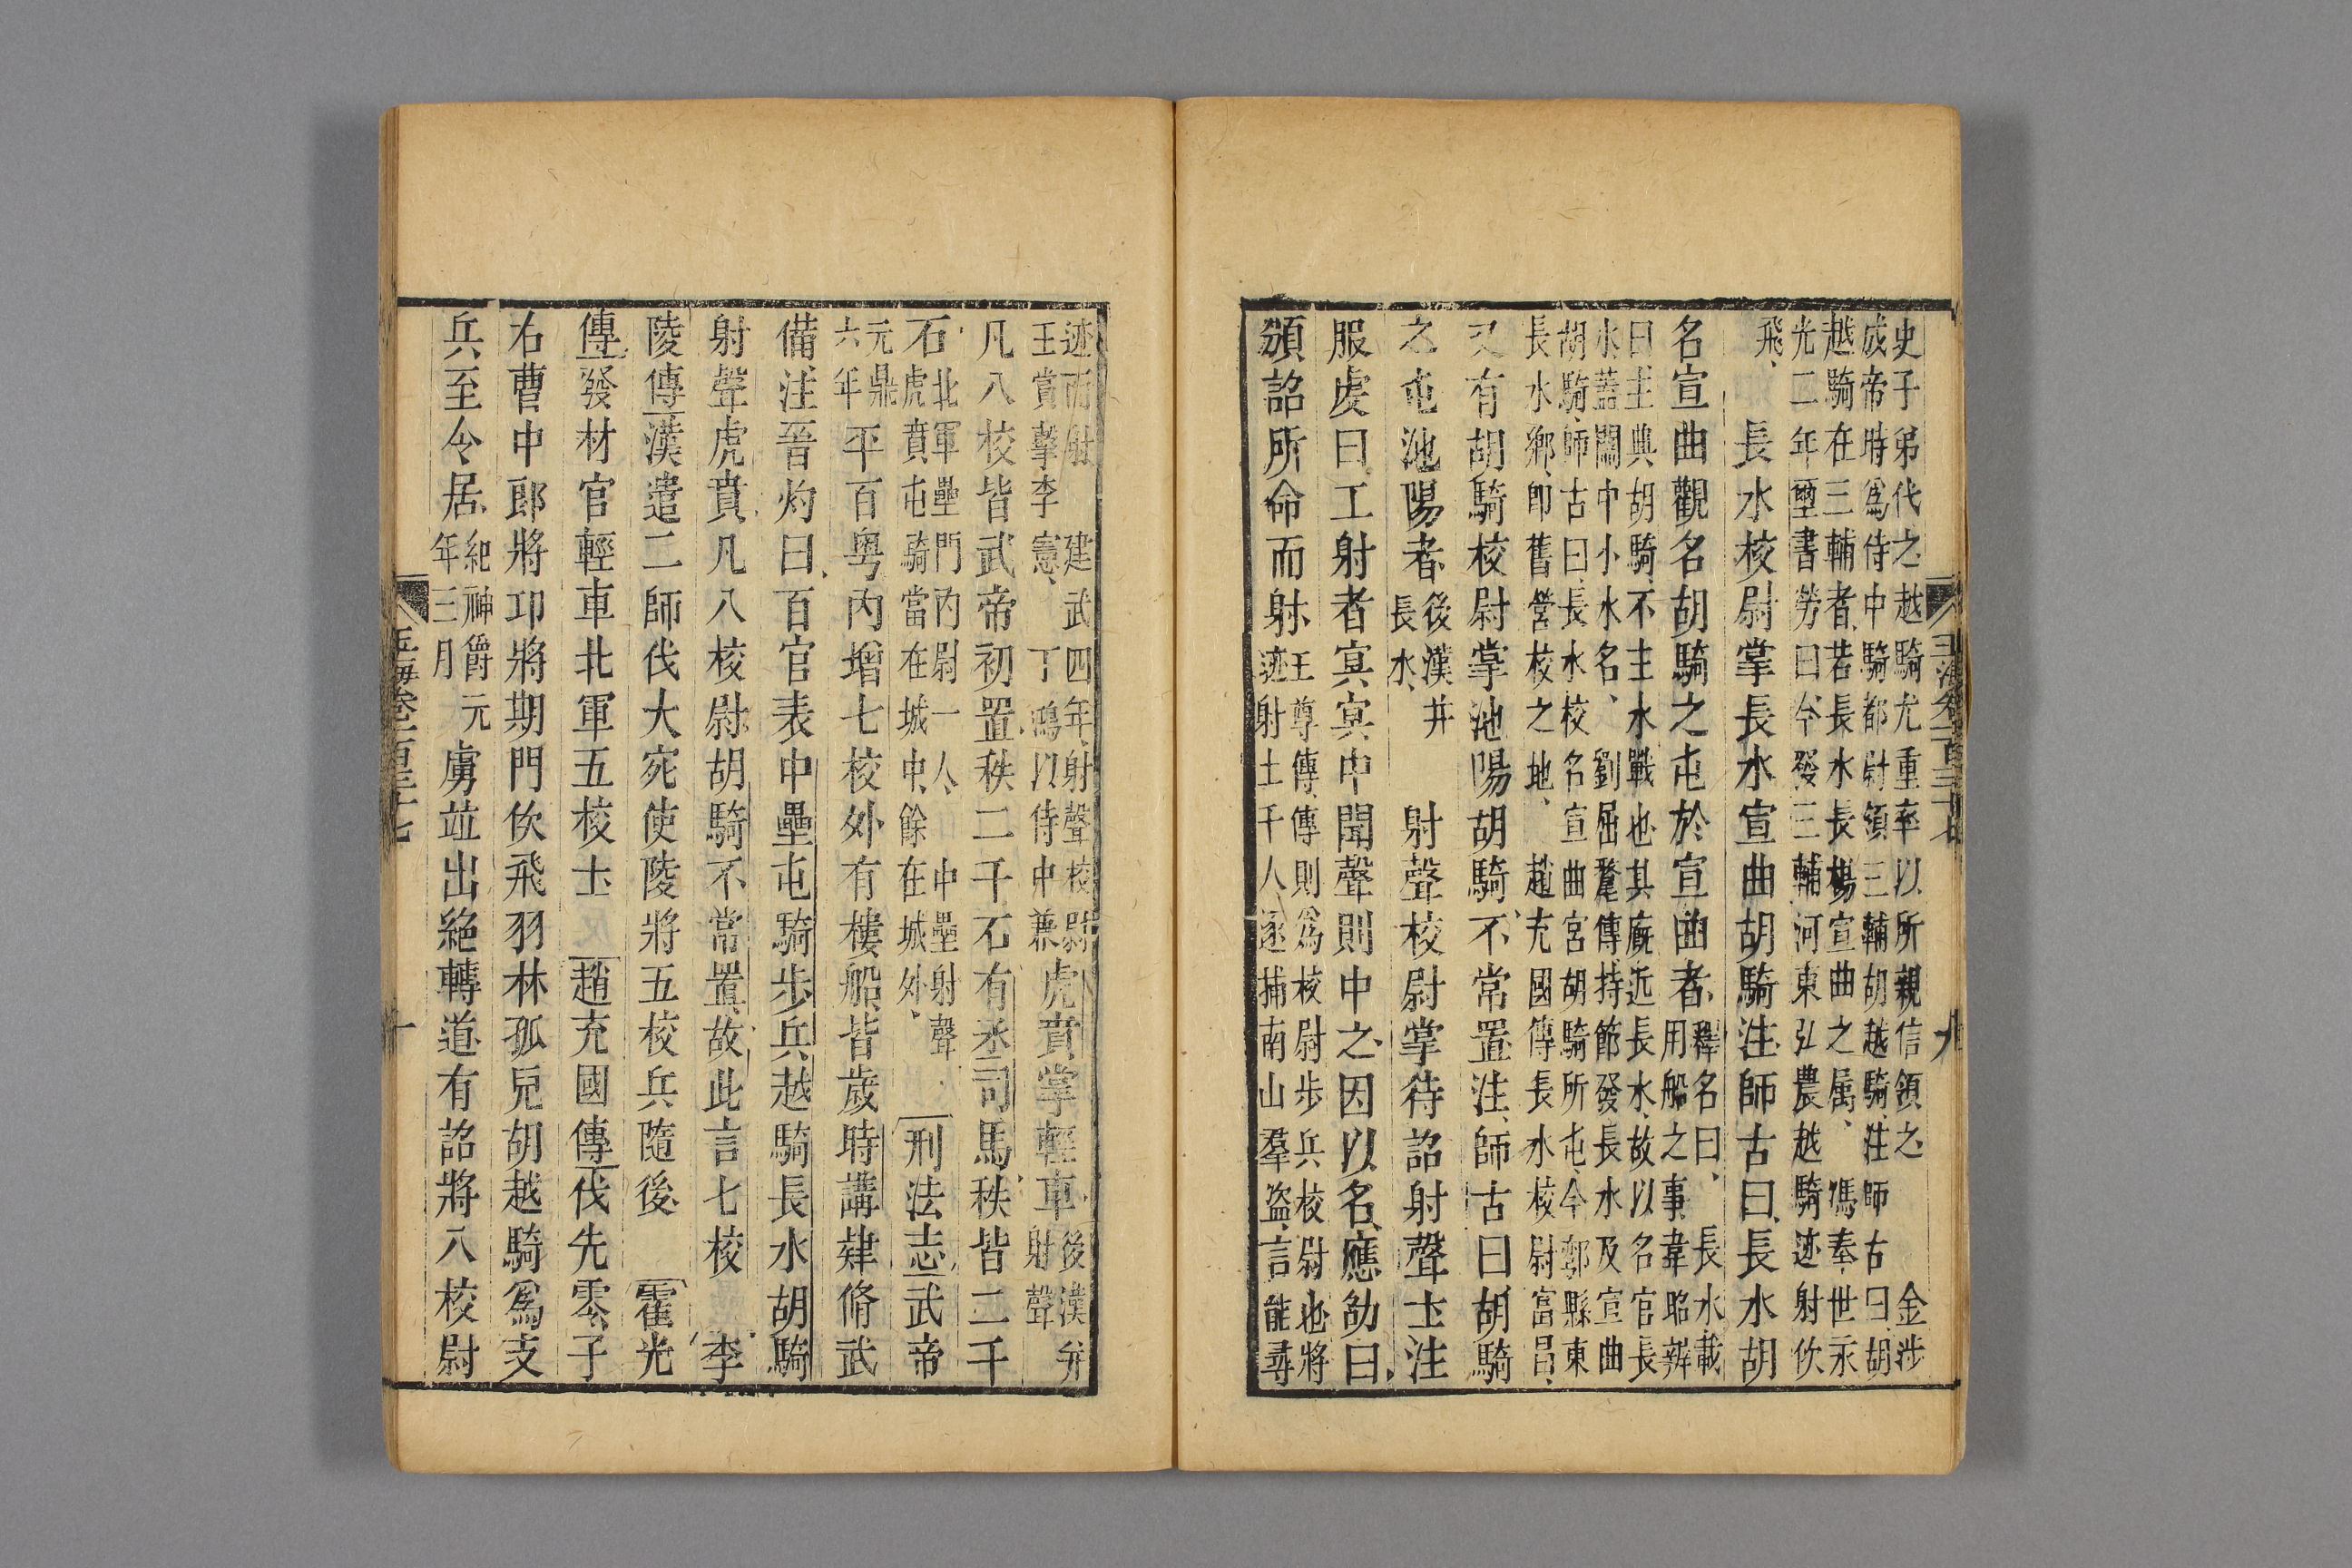 玉海卷一百三十七
九
史子弟代之越騎尤重率以所親信領之　金涉
成帝時爲侍中騎都尉領三輔胡越騎注師古曰胡
越騎在三輔者若長水長楊宣曲之屬　馮奉世永
光二年璽書勞曰今發三輔河東弘農越騎迹射佽
飛
長水校尉掌長水宣曲胡騎注師古曰長水胡
名宣曲觀名胡騎之屯於宣曲者
釋名曰　長水載
用船之事韋昭辨
曰主典胡騎不主水戰也其廐近長水故以名官長
水蓋關中小水名　劉屈氂傳持節發長水及宣曲
胡騎師古曰長水校名宣曲宮胡騎所屯今鄠縣東
長水鄉即舊營校之地　趙充國傳長水校尉富昌
又有胡騎校尉掌池陽胡騎不常置注師古曰胡騎
之屯池陽者
後漢并
長水
射聲校尉掌待詔射聲士注
服虔曰工射者寘寘中聞聲則中之因以名應劭曰
須詔所命而射
王尊傳傳則爲校尉步兵校尉也將
迹射士千人逐捕南山羣盜言能尋
迹而射　建武四年射聲校尉
王賞擊李憲　丁鴻以侍中兼
虎賁掌輕車
後漢并
射聲
凡八校皆武帝初置秩二千石有丞司馬秩皆二千
石
北軍壘門內尉一人　中壘射聲
虎賁屯騎當在城中餘在城外
刑法志武帝
元鼎
六年
平百粤內增七校外有樓船皆歲時講肄脩武
備注晉灼曰百官表中壘屯騎步兵越騎長水胡騎
射聲虎賁凡八校尉胡騎不常置故此言七校　李
陵傳漢遣二師伐大宛使陵將五校兵隨後　霍光
傳發材官輕車北軍五校士　趙充國傳伐先零子
右曹中郎將卬將期門佽飛羽林孤兒胡越騎爲支
兵至令居
紀神爵元
年三月
虜竝出絶轉道有詔將八校尉
玉海卷一百三十七
十